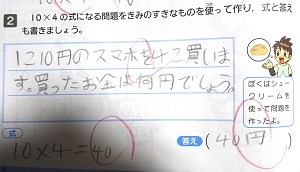 2 10×4の式になる問題をきみのすきなものを使って作り、式と答え
も書きましょう。
1こ10円のスマホを4こ買いま
す。買ったお金は何円でしょう。
ぼくはシュー
クリームを
使って問題を
作ったよ。
式
10×4=40
答え (40円)